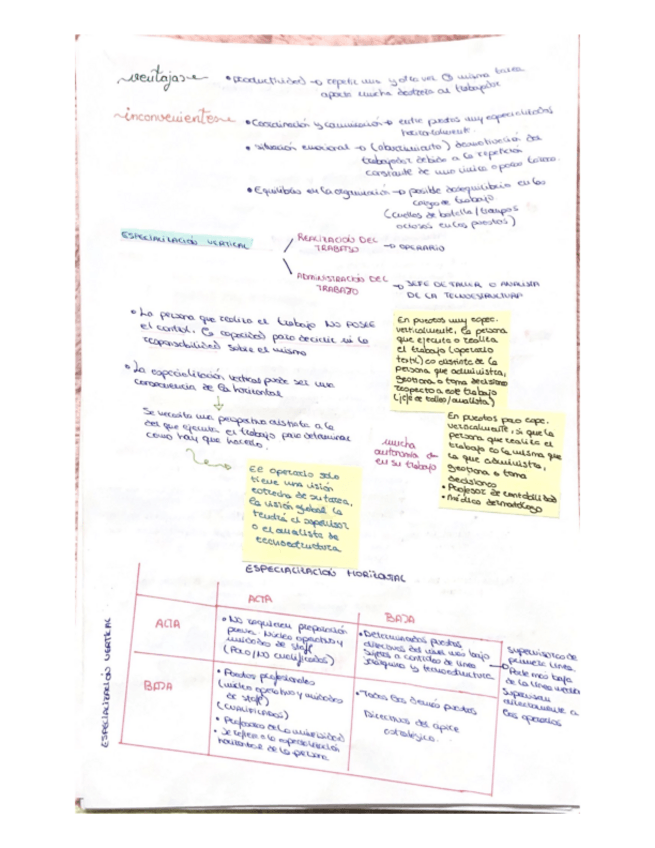 ventajas
• productividad → repetir una y otra vez la misma tarea
aporta mucha destreza al trabajador
inconvenientes
• Coordinación y comunicación → entre puestos muy especializados
horizontalmente.
• situación emocional → (aburrimiento) desmotivación del
trabajador debido a la repetición
constante de una única operación.
• Equilibrio en la organización → posible desequilibrio en las
cargas de trabajo
(cuellos de botella / tiempos
ociosos en los puestos)
ESPECIALIZACIÓN VERTICAL
REALIZACIÓN DEL
TRABAJO → OPERARIO
ADMINISTRACIÓN DEL
TRABAJO → JEFE DE TALLER O ANALISTA
DE LA TECNOESTRUCTURA
• La persona que realiza el trabajo NO POSEE
el control, la capacidad para decidir ni la
responsabilidad sobre el mismo
• La especialización vertical puede ser una
consecuencia de la horizontal
↓
Se necesita una perspectiva distinta a la
del que ejecuta el trabajo para determinar
como hay que hacerlo.
El operario solo
tiene una visión
estrecha de su tarea,
la visión global la
tendrá el supervisor
o el analista de
tecnoestructura
En puestos muy espec.
verticalmente, la persona
que ejecuta o realiza
el trabajo (operario
textil) es distinta de la
persona que administra,
gestiona o toma decisiones
respecto a este trabajo
(jefe de taller/analista)
mucha
autonomía
en su trabajo
En puestos poco espe.
verticalmente, si que la
persona que realiza el
trabajo es la misma que
la que administra,
gestiona o toma
decisiones
• Profesor de contabilidad
• Médico dermatólogo
ESPECIALIZACIÓN HORIZONTAL
ESPECIALIZACIÓN VERTICAL
ALTA
BAJA
ALTA
• No requieren preparación
previa. Núcleo operativo y
unidades de staff
(POCO/NO CUALIFICADOS)
• Determinados puestos
directivos del nivel más bajo
sujetos a controles de línea
jerárquica y tecnoestructura
→ supervisores de
primera línea.
Parte más baja
de la línea media
Supervisan
directamente a
los operarios
BAJA
• Puestos profesionales
(núcleo operativo y unidades
de staff)
(CUALIFICADOS)
• Profesores de la universidad
• Se refiere a la especialización
horizontal de la persona
• Todos los demás puestos
Directivos del ápice
estratégico.